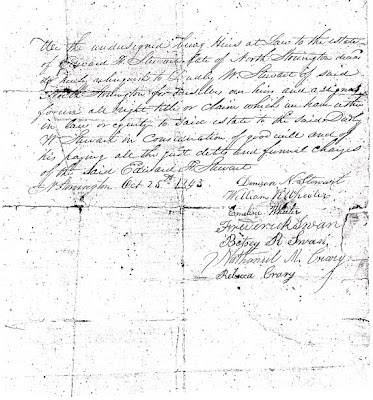 We the undersigned being Heirs at Law to the estate
of Edward H. Stewart late of North Stonington deceas
do hereby relinquish to Dudly W Stewart of said
North Stonington for ourselves our heirs and assigns
forever all right title or claim which we have either
in law or equity to said estate to the said Dudly
W Stewart in Consideration of good will and of
his paying all the just debts and funeral charges
of the said Edward H Stewart
N Stonington Oct 25th 1843
Denison N Stewart
William R Wheeler
Emeline Wheeler
Frederick Swan
Betsey A Swan
Nathaniel M. Crary
Rebecca Crary